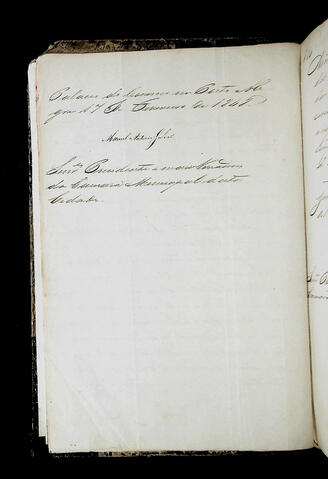 Palacio do Governo em Porto Ale
gre 17 de Fevereiro de 1848.
Manoel Antonio
Snr.es Presidente e mais Vereadores
da Camara Municipal desta
Cidade.